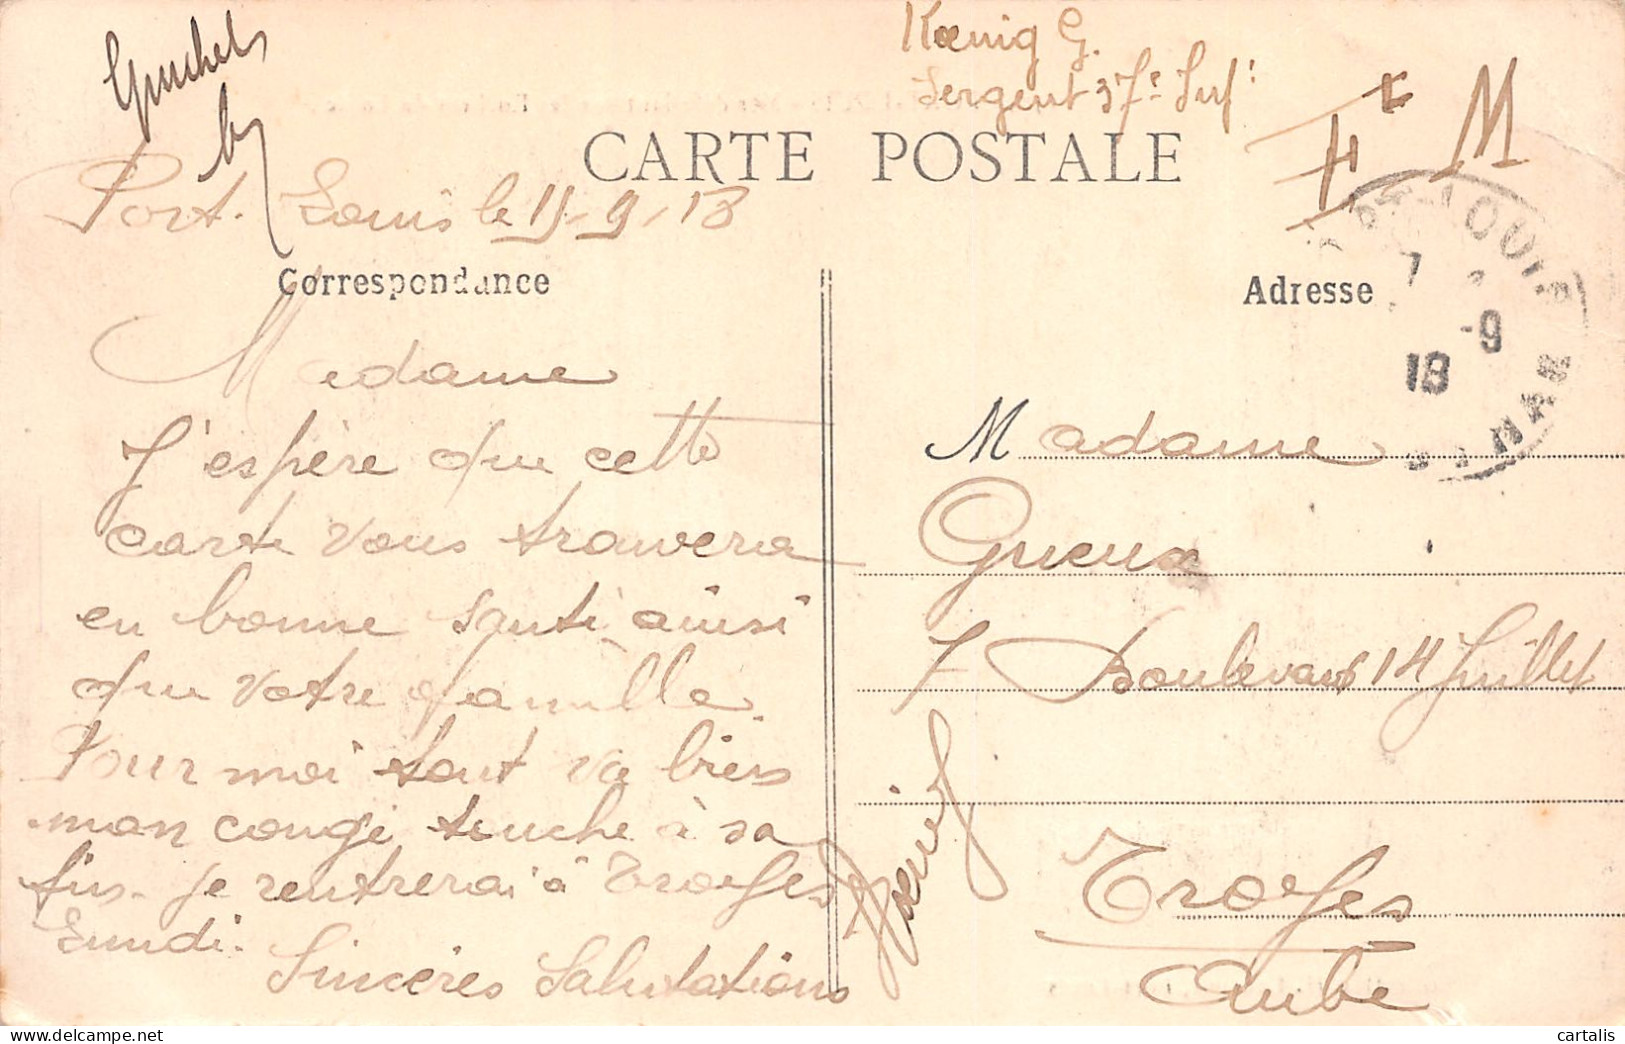 Kœnig G.
Sergent 37e Inf:
Fse M
CARTE POSTALE
Port. Louis le 15-9-18
Correspondance
Madame
J'espère que cette
carte vous trouvera
en bonne santé ainsi
que votre famille.
Pour moi tout va bien
mon congé touche à sa
fin. je rentrerai à Troyes
Lundi.
Sincères Salutations
Kœnig
Adresse
7
-9
18
Madame
Gueux
7 Boulevard 14 Juillet
Troyes
Aube
cartalis